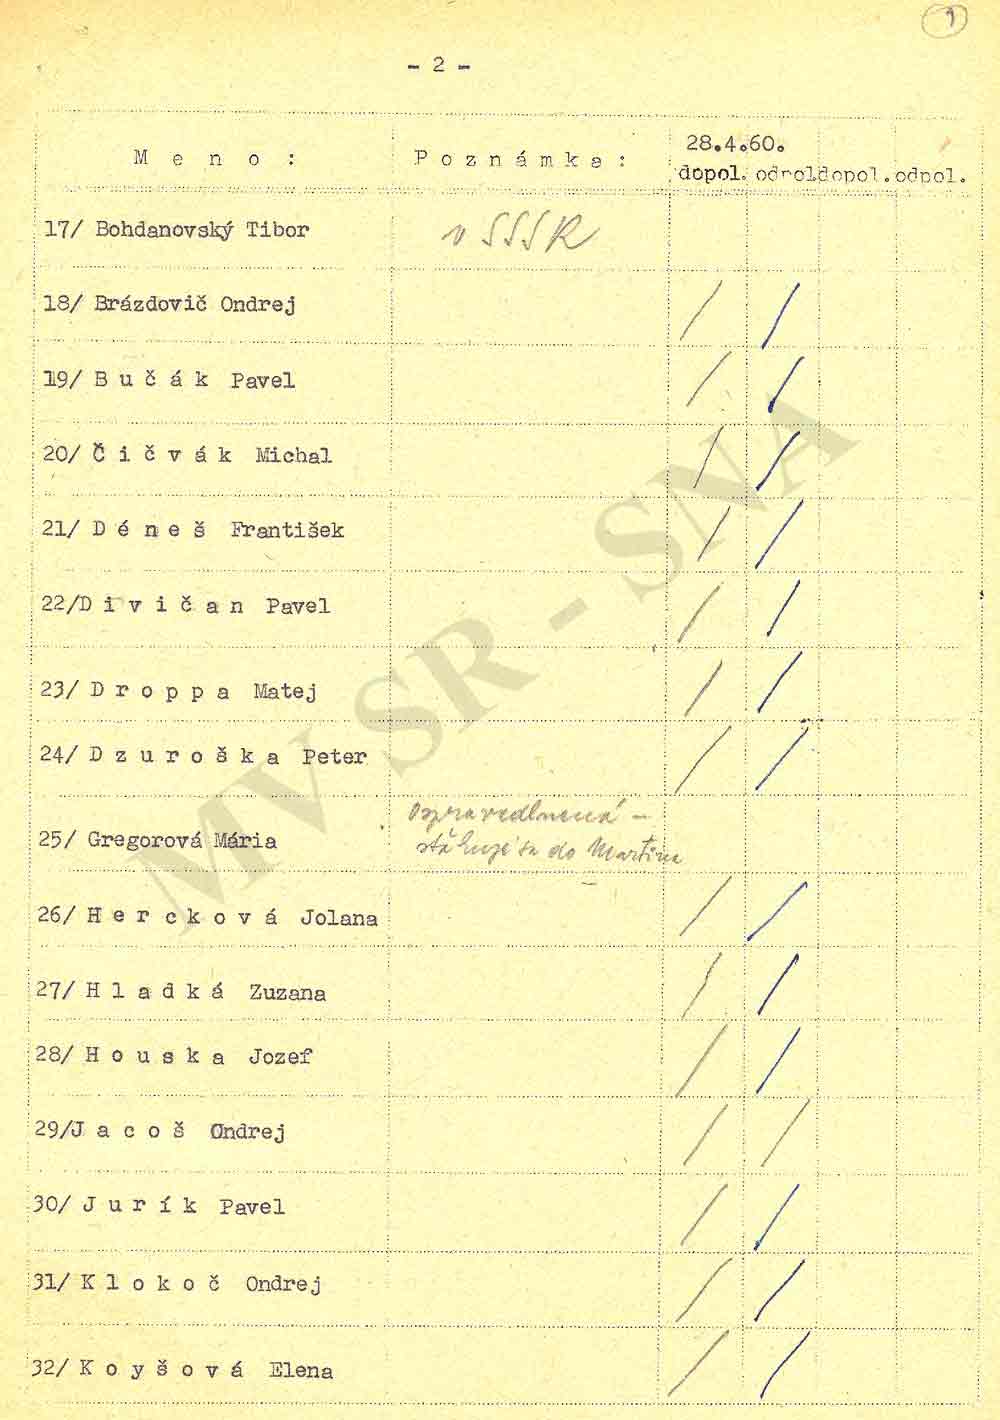 9
- 2 -
M e n o :
P o z n á m k a :
28.4.60.
dopol. odpol. dopol. odpol.
17/ Bohdanovský Tibor
v SSSR
18/ Brázdovič Ondrej
19/ B u č á k Pavel
20/ Č i č v á k Michal
21/ D é n e š František
22/D i v i č a n Pavel
23/ D r o p p a Matej
24/ D z u r o š k a Peter
25/ Gregorová Mária
ospravedlnená -
sťahuje sa do Martina
26/ H e r c k o v á Jolana
27/ H l a d k á Zuzana
28/ H o u s k a Jozef
29/J a c o š Ondrej
30/ J u r í k Pavel
31/ K l o k o č Ondrej
32/ K o y š o v á Elena
MV SR - SNA